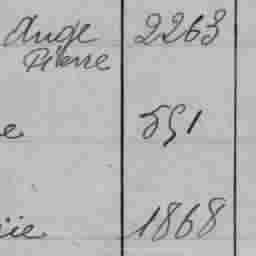 Ange 2263
Pierre
e 551
iie 1868